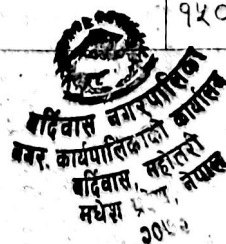 ९५०
बर्दिवास नगरपालिका
नगर कार्यपालिकाको कार्यालय
बर्दिवास, महोत्तरी
मधेश प्रदेश, नेपाल